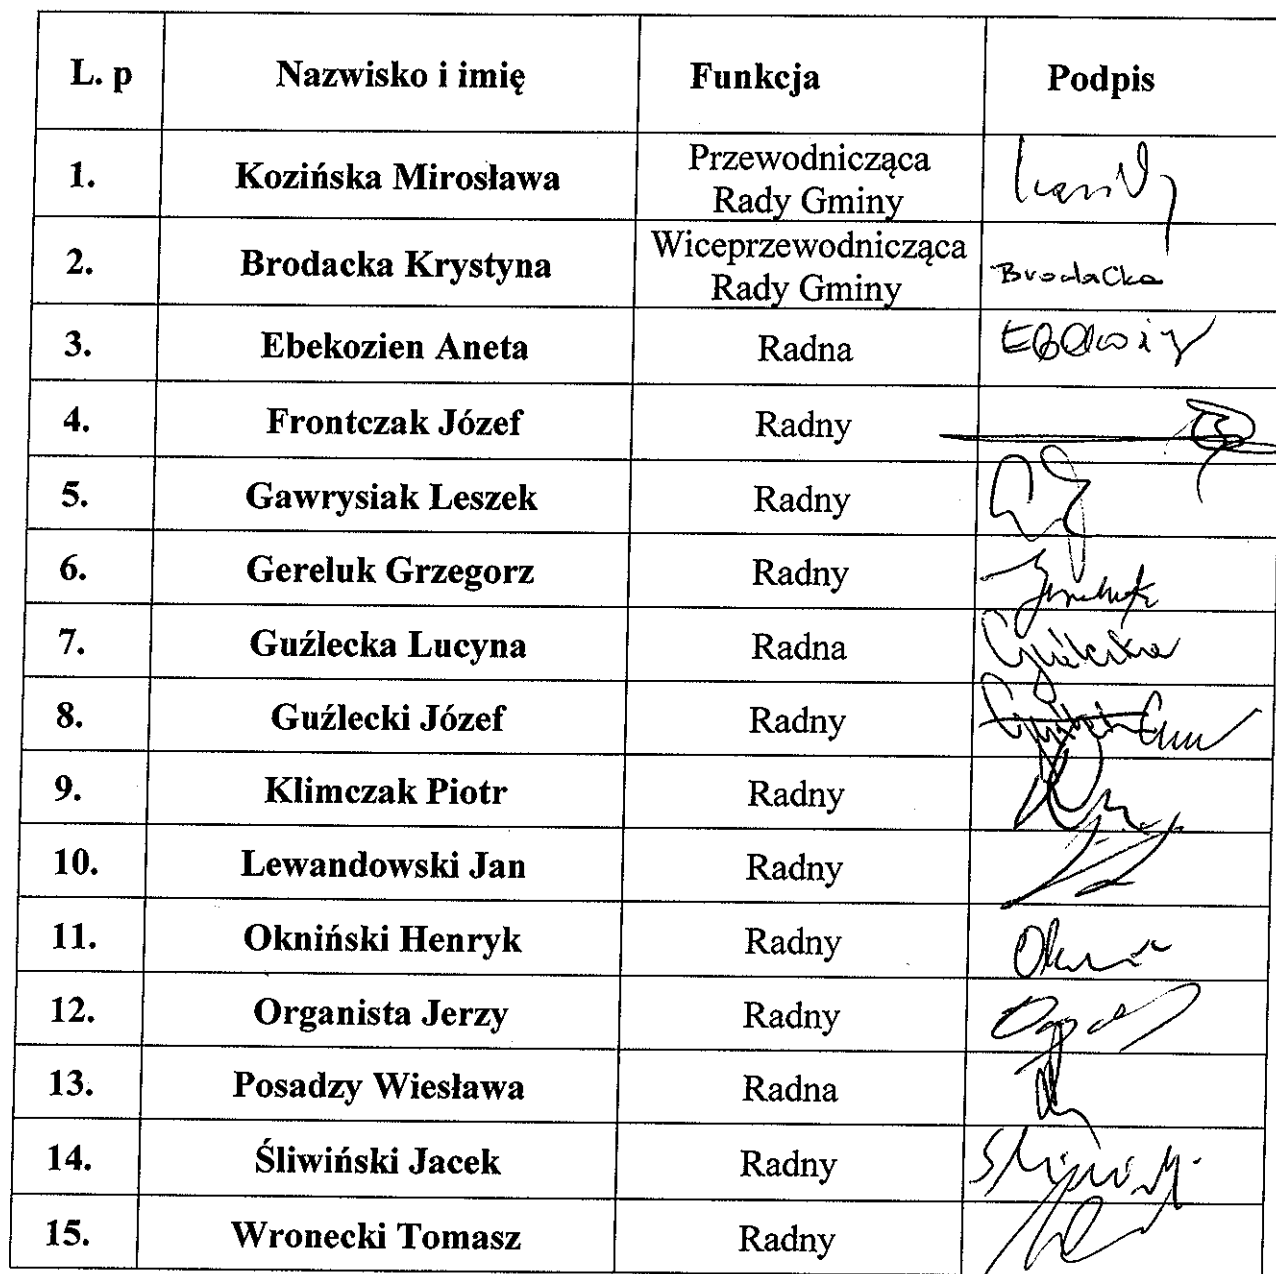 L. p Nazwisko i imię Funkcja Podpis
1. Kozińska Mirosława Przewodnicząca
Rady Gminy
2. Brodacka Krystyna Wiceprzewodnicząca
Rady Gminy Brodacka
3. Ebekozien Aneta Radna
4. Frontczak Józef Radny
5. Gawrysiak Leszek Radny
6. Gereluk Grzegorz Radny
7. Guźlecka Lucyna Radna Guźlecka
8. Guźlecki Józef Radny
9. Klimczak Piotr Radny
10. Lewandowski Jan Radny
11. Okniński Henryk Radny
12. Organista Jerzy Radny
13. Posadzy Wiesława Radna
14. Śliwiński Jacek Radny
15. Wronecki Tomasz Radny